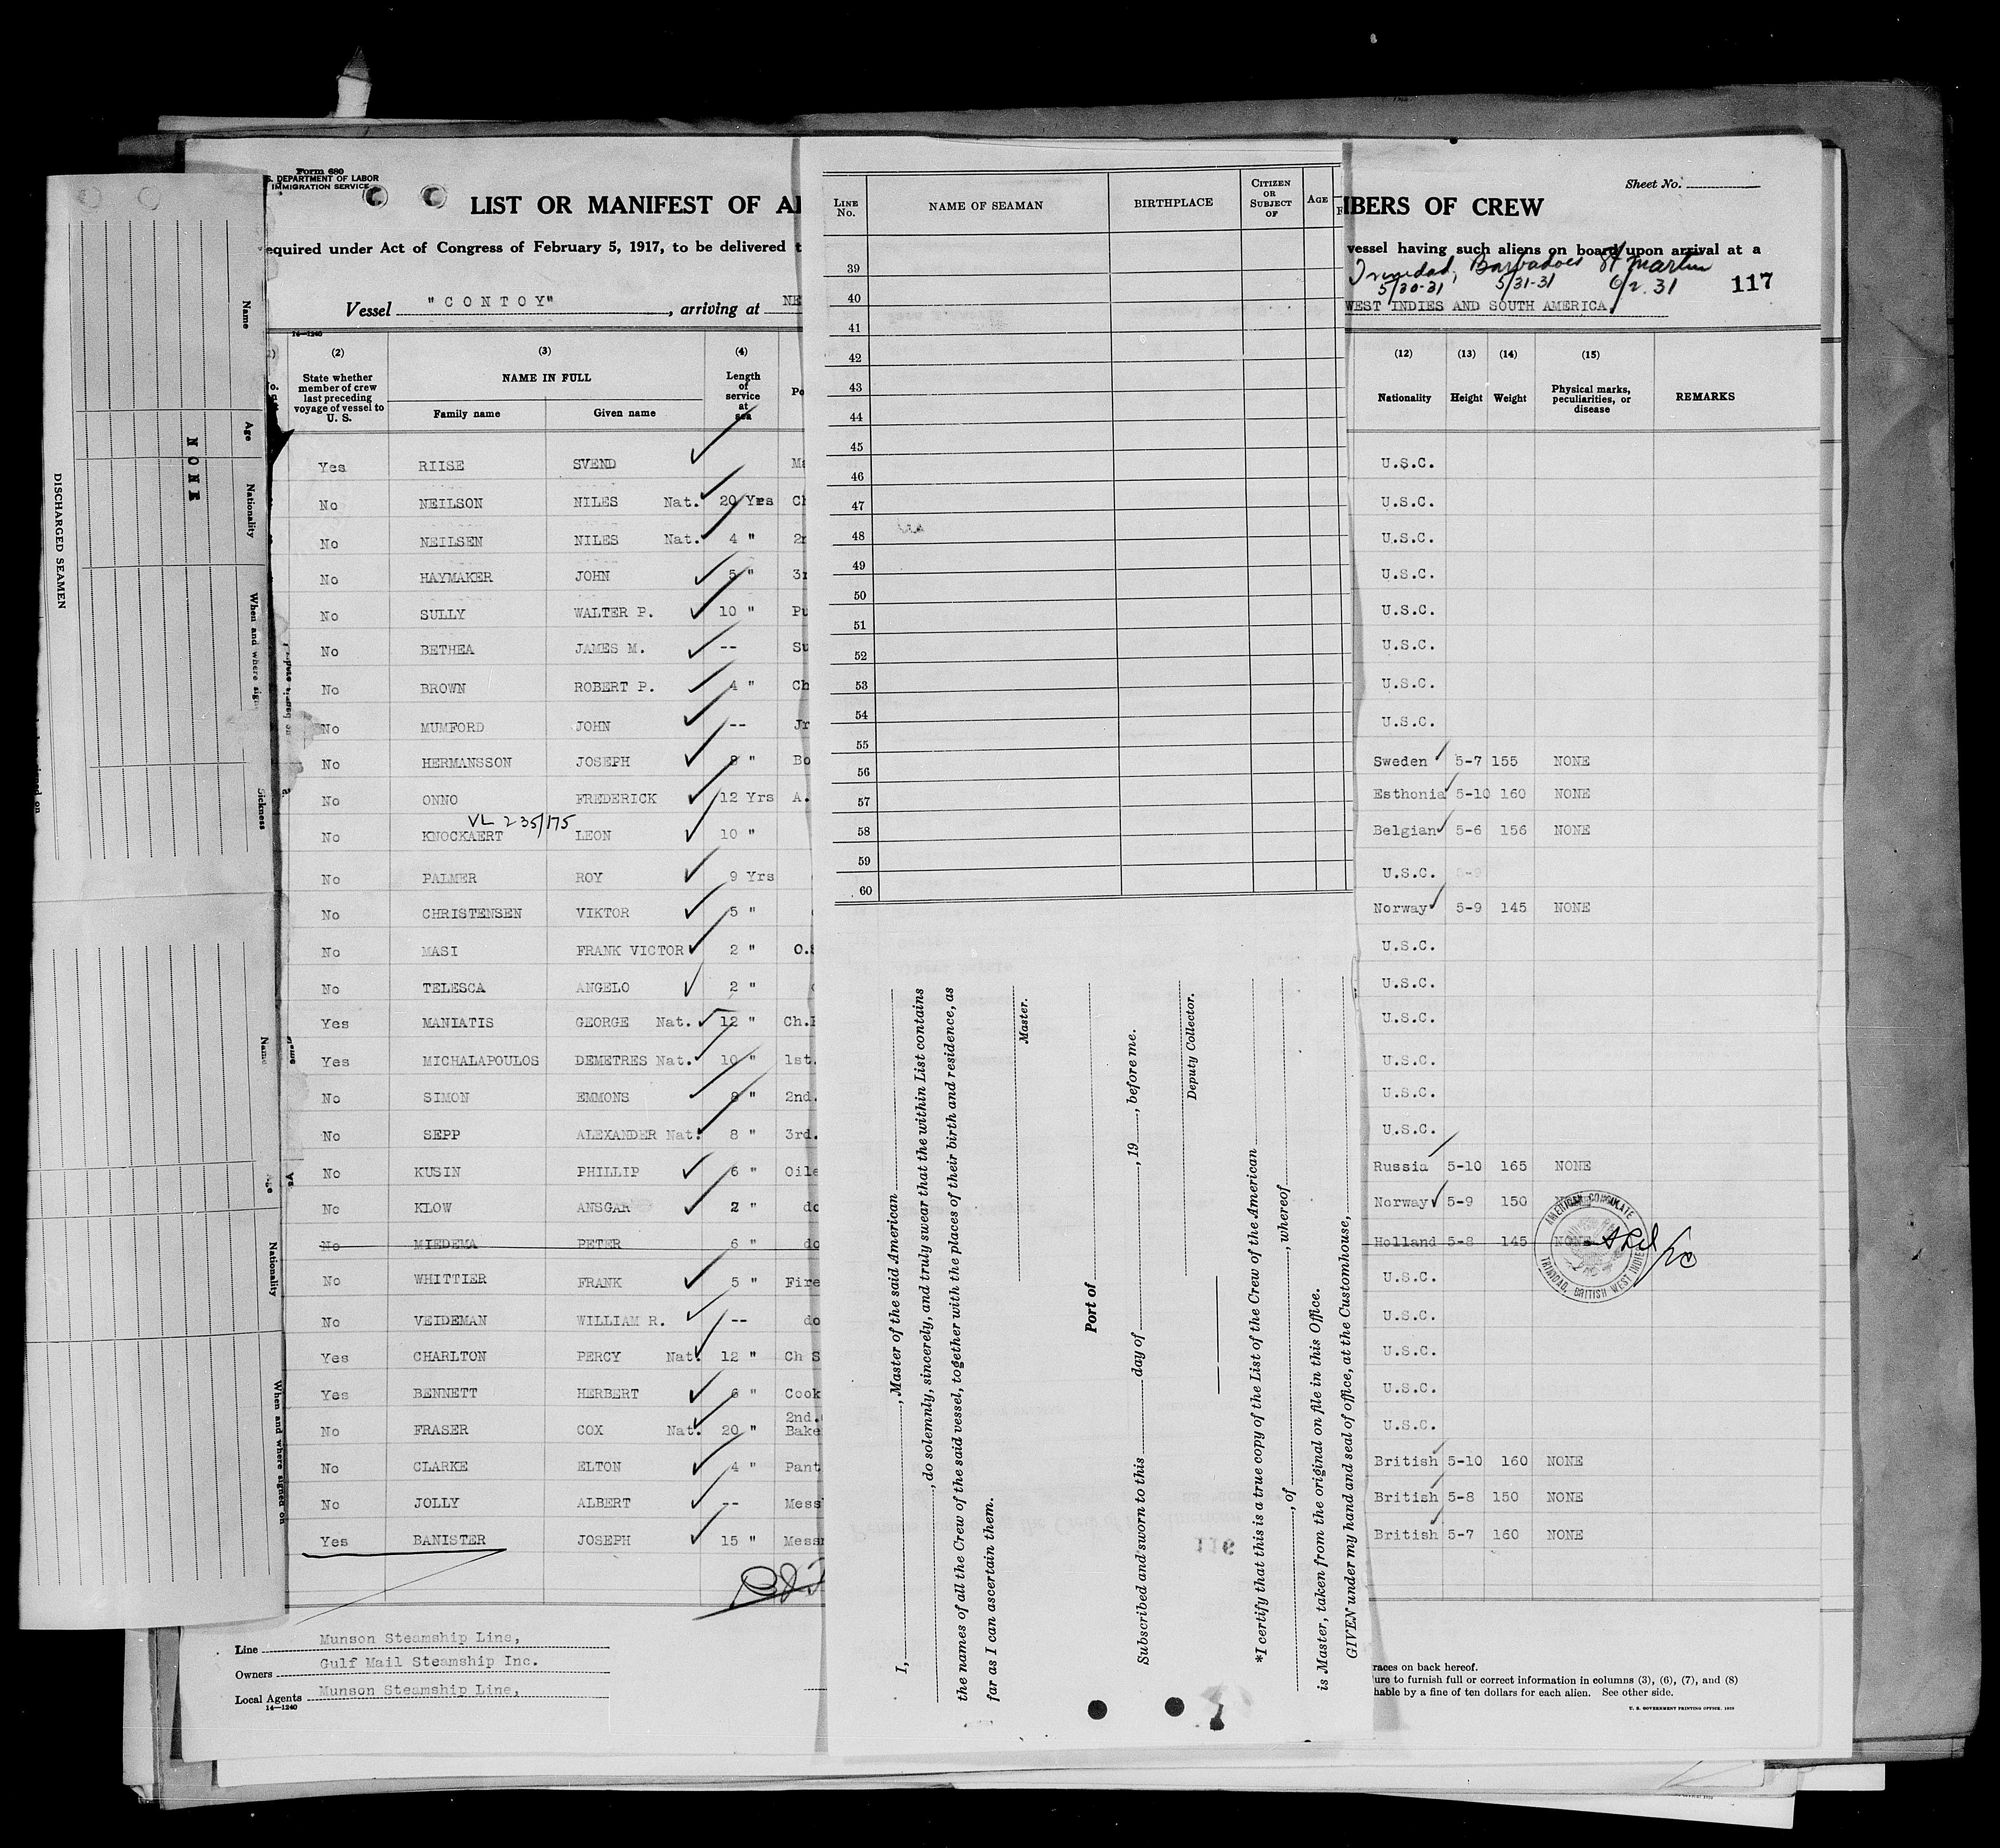 Form 680
S. DEPARTMENT OF LABOR
IMMIGRATION SERVICE
Sheet No.
LIST OR MANIFEST OF
BERS OF CREW
equired under Act of Congress of February 5, 1917, to be delivered
vessel having such aliens on board upon arrival at a
Trinidad, Barbadoes St Martin
5/30-31 5/31-31 6/2.31
117
Vessel "CONTOY", arriving at NE
WEST INDIES AND SOUTH AMERICA
14-1240
(2) (3) (4) (12) (13) (14) (15)
State whether member of crew last preceding voyage of vessel to U. S.
NAME IN FULL
Family name Given name
Length of service at sea
Nationality Height Weight Physical marks, peculiarities, or disease REMARKS
Yes RIISE SVEND U.S.C.
No NEILSON NILES Nat. 20 Yrs U.S.C.
No NEILSEN NILES Nat. 4 " 2n U.S.C.
No HAYMAKER JOHN 5 " 3r U.S.C.
No SULLY WALTER P. 10 " Pu U.S.C.
No BETHEA JAMES M. -- Su U.S.C.
No BROWN ROBERT P. 4 " Ch U.S.C.
No MUMFORD JOHN -- Jr U.S.C.
No HERMANSSON JOSEPH 8 " Bo Sweden 5-7 155 NONE
No ONNO FREDERICK 12 Yrs A. Esthonia 5-10 160 NONE
VL 235/175
No KNOCKAERT LEON 10 " Belgian 5-6 156 NONE
No PALMER ROY 9 Yrs U.S.C. 5-9
No CHRISTENSEN VIKTOR 5 " Norway 5-9 145 NONE
No MASI FRANK VICTOR 2 " O.S U.S.C.
No TELESCA ANGELO 2 " U.S.C.
Yes MANIATIS GEORGE Nat. 12 " Ch. U.S.C.
Yes MICHALAPOULOS DEMETRES Nat. 10 " 1st. U.S.C.
No SIMON EMMONS 8 " 2nd. U.S.C.
No SEPP ALEXANDER Nat. 8 " 3rd. U.S.C.
No KUSIN PHILLIP 6 " Oile Russia 5-10 165 NONE
No KLOW ANSGAR 2 " do Norway 5-9 150 NONE
No MIEDEMA PETER 6 " do Holland 5-8 145 NONE
No WHITTIER FRANK 5 " Fire U.S.C.
No VEIDEMAN WILLIAM R. -- do U.S.C.
Yes CHARLTON PERCY Nat. 12 " Ch S U.S.C.
Yes BENNETT HERBERT 6 " Cook U.S.C.
No FRASER COX Nat. 20 " 2nd. Bake U.S.C.
No CLARKE ELTON 4 " Pant British 5-10 160 NONE
No JOLLY ALBERT -- Mess British 5-8 150 NONE
Yes BANISTER JOSEPH 15 " Mess British 5-7 160 NONE
AMERICAN CONSULATE
TRINIDAD, BRITISH WEST INDIES
Line Munson Steamship Line,
Owners Gulf Mail Steamship Inc.
Local Agents Munson Steamship Line,
14-1240
races on back hereof.
ure to furnish full or correct information in columns (3), (6), (7), and (8)
hable by a fine of ten dollars for each alien. See other side.
U. S. GOVERNMENT PRINTING OFFICE. 1929
LINE No. NAME OF SEAMAN BIRTHPLACE CITIZEN OR SUBJECT OF AGE
39
40
41
42
43
44
45
46
47
48
49
50
51
52
53
54
55
56
57
58
59
60
I, , Master of the said American
, do solemnly, sincerely, and truly swear that the within List contains
the names of all the Crew of the said vessel, together with the places of their birth and residence, as
far as I can ascertain them.
Master.
Port of
Subscribed and sworn to this day of , 19 , before me.
Deputy Collector.
*I certify that this is a true copy of the List of the Crew of the American
, of , whereof
is Master, taken from the original on file in this Office.
GIVEN under my hand and seal of office, at the Customhouse,
116
DISCHARGED SEAMEN
Name
Age
Nationality
When and where sign
Sickness
NONE
Name
Age
Nationality
When and where signed on